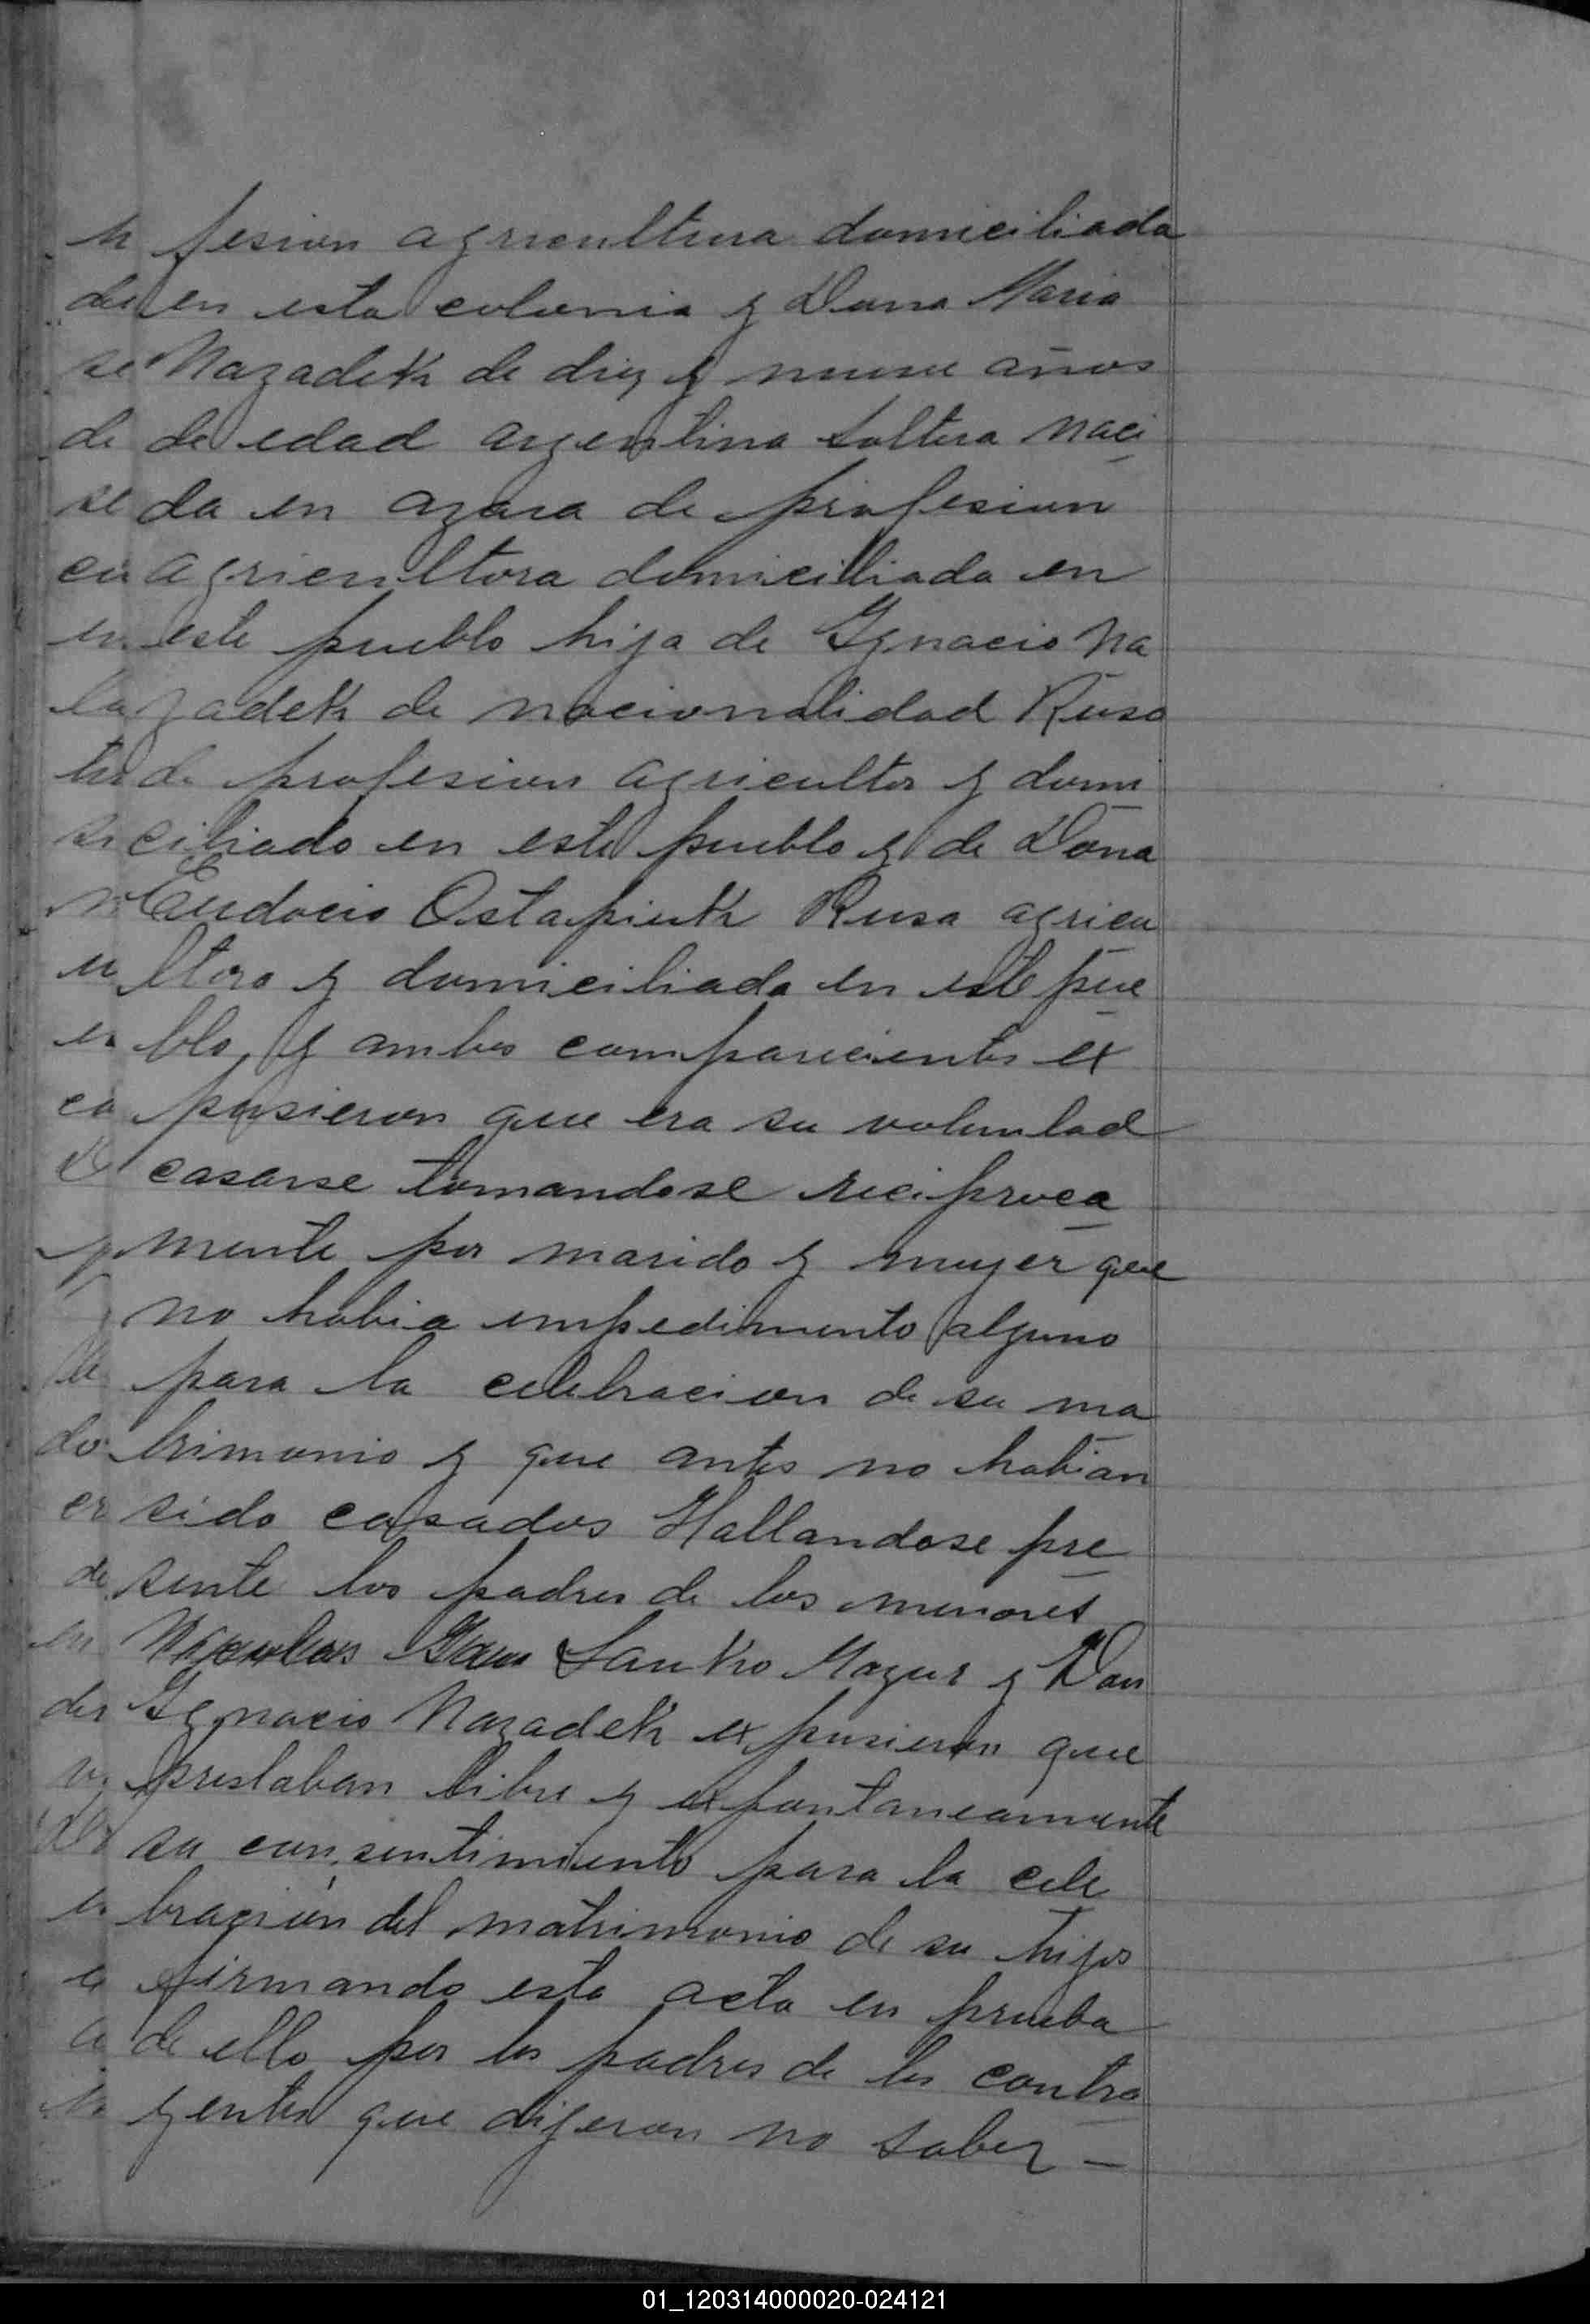 fesion agricultura domiciliada
en esta colonia y Dona Maria
Nazadek de diez y nueve años
de edad argentina soltera naci
da en azara de profesion
agricultora domiciliada en
este pueblo hija de Ygnacio Na
zadek de nacionalidad Ruso
de profesion agricultor y domi
ciliado en este pueblo y de Dona
Eudocio Ostapiuk Rusa agricu
ltora y domiciliada en este pue
blo, y ambos comparecientes ex
pusieron que era su voluntad
casarse tomandose reciproca
mente por marido y mujer que
no habia impedimento alguno
para la celebracion de su ma
trimonio y que antes no habian
sido casados Hallandose pre
sente los padres de los menores
Lauko Mazur y Don
Ygnacio Nazadek expusieron que
prestaban libre y expontaneamente
su consentimiento para la cele
bracion del matrimonio de su hijos
firmando esta acta en prueba
de ello por los padres de los contra
yentes que dijeron no saber –
01_120314000020-024121